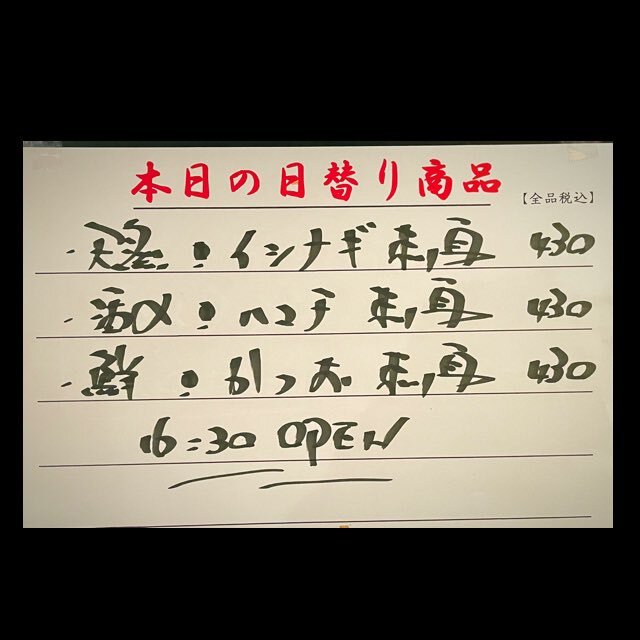 本日の日替り商品
【全品税込】
・天然！イシナギ刺身 430
・活〆！ハマチ刺身 430
・鮮！かつお刺身 430
16:30 OPEN